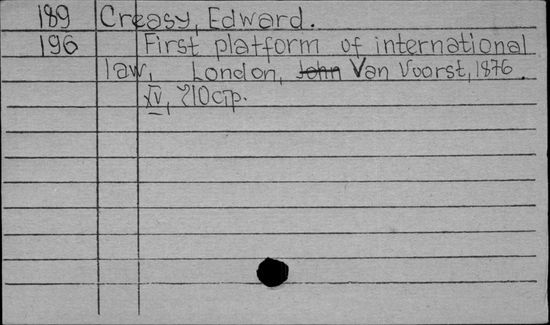 189 Creasy, Edward.
196 First platform of international
law, London, John Van Voorst, 1876.
XV, 710 c, p.